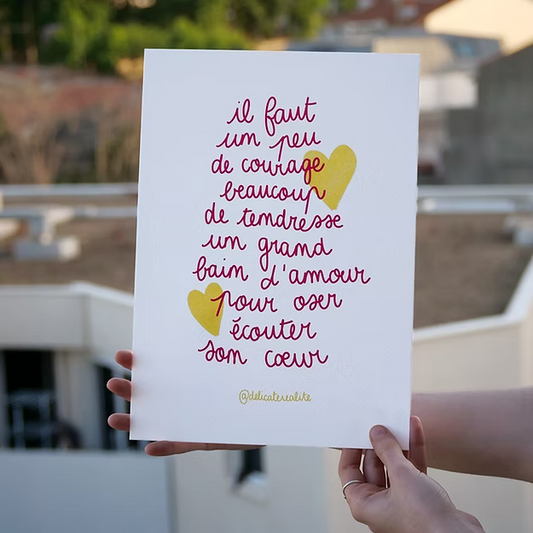 il faut
un peu
de courage
beaucoup
de tendresse
un grand
bain d'amour
pour oser
écouter
son cœur
@delicaterealite